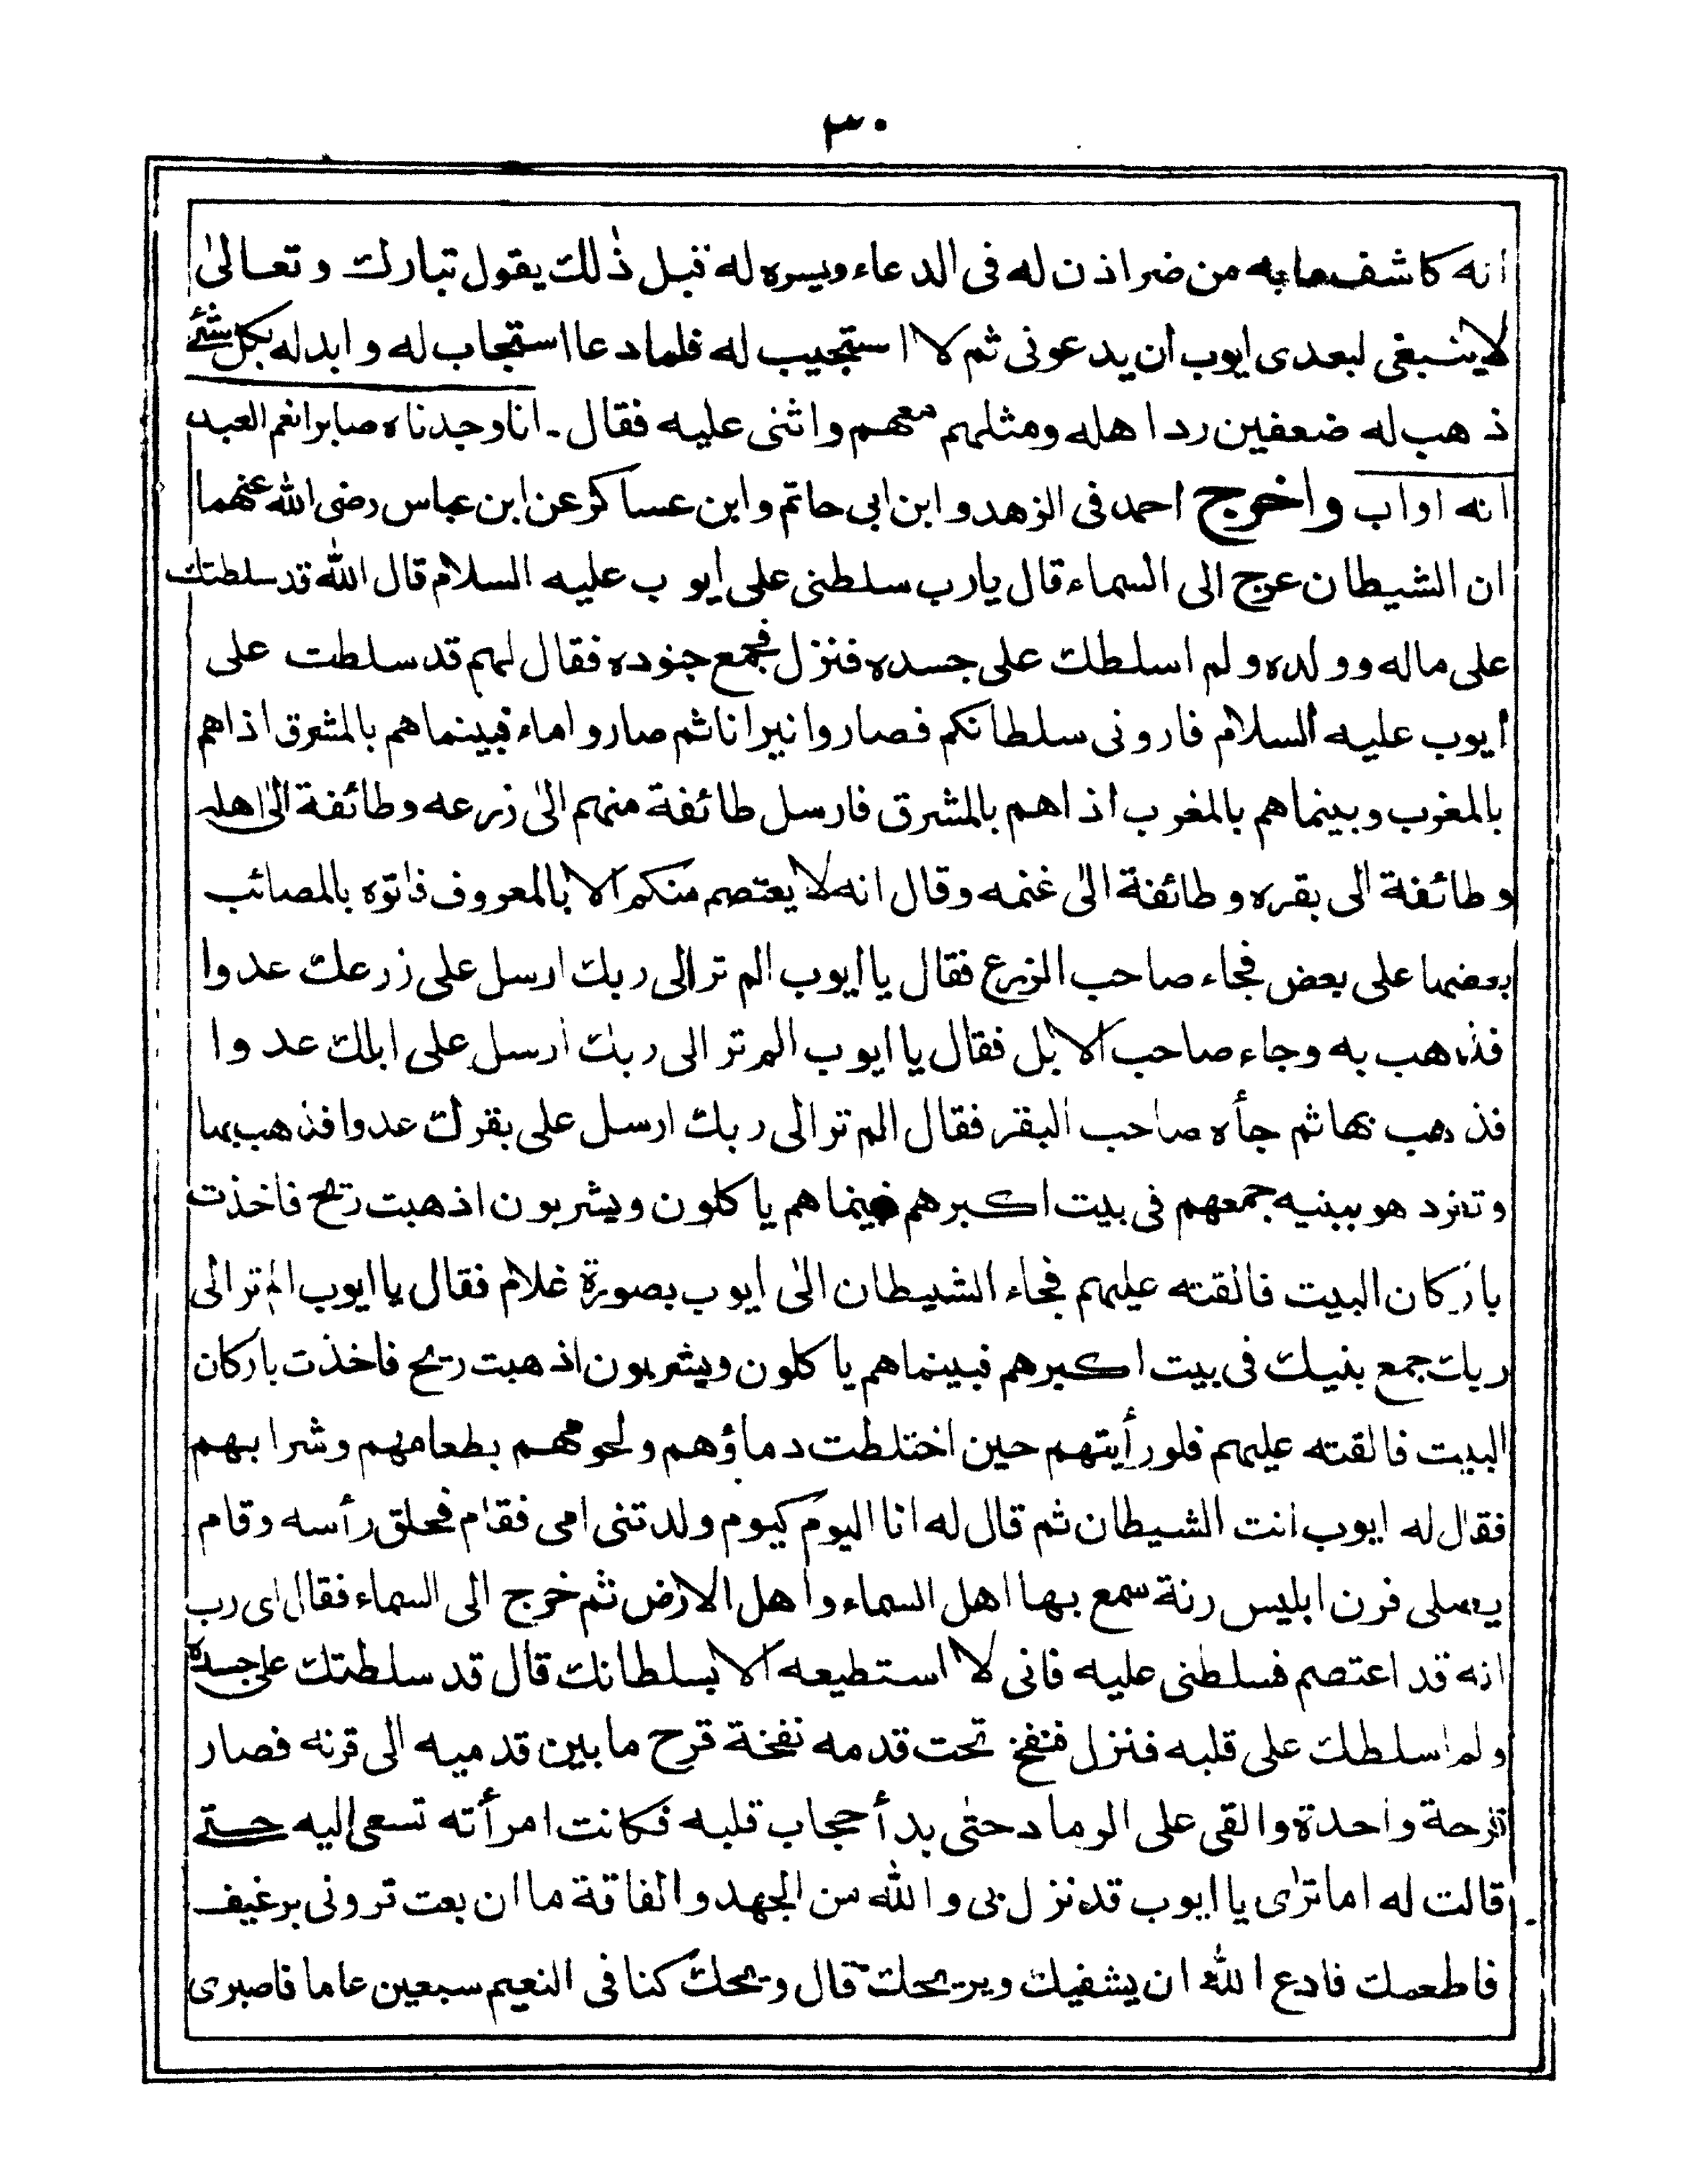 ٣٠
انه كاشف مابه من ضر اذن له فى الدعاء ويسره له قبل ذٰلك يقول تبارك وتعالىٰ
لاينبغى لبعدى ايوب أن يدعونى ثم لا استجيب له فلما دعا استجاب له وابدله بكل شئے
ذهب له ضعفين رد اهله ومثلهم معهم واثنى عليه فقال ـ انا وجدناه صابرا نعم العبد
انه اواب واخرج احمد فى الزهد وابن ابى حاتم وابن عساكر عن ابن عباس رضى الله عنهما
ان الشيطان عرج الى السماء قال يارب سلطنى على ايوب عليه السلام قال الله قد سلطتك
على ماله وولده ولم اسلطك على جسده فنزل فجمع جنوده فقال لهم قد سلطت على
أيوب عليه السلام فارونى سلطانكم فصاروا نيرانا ثم صاروا ماء فبينما هم بالمشرق اذاهم
بالمغرب وبينما هم بالمغرب اذاهم بالمشرق فارسل طائفة منهم الىٰ زرعه وطائفة الىٰ اهله
وطائفة الى بقره وطائفة الىٰ غنمه وقال انه لا يعتصم منكم الا بالمعروف فاتوه بالمصائب
بعضها على بعض فجاء صاحب الزرع فقال يا ايوب الم تر الى ربك ارسل على زرعك عدوا
فذهب به وجاء صاحب الابل فقال يا ايوب الم تر الى ربك ارسل على ابلك عدوا
فذهب بها ثم جأه صاحب البقر فقال الم تر الى ربك ارسل على بقرك عدوا فذهب بها
وتفرد هو ببنيه جمعهم فى بيت اكبرهم فبينما هم ياكلون ويشربون اذ هبت ريح فاخذت
باركان البيت فالقته عليهم فجاء الشيطان الىٰ ايوب بصورة غلام فقال يا ايوب الم تر الى
ربك جمع بنيك فى بيت اكبرهم فبينما هم ياكلون ويشربون اذ هبت ريح فاخذت باركان
البيت فالقته عليهم فلو رأيتهم حين اختلطت دماؤهم ولحومهم بطعامهم وشرابهم
فقال له ايوب انت الشيطان ثم قال له انا اليوم كيوم ولدتنى امى فقام فحلق رأسه وقام
يصلى فرن ابليس رنة سمع بها اهل السماء واهل الارض ثم خرج الى السماء فقال اى رب
انه قد اعتصم فسلطنى عليه فانى لا استطيعه الا بسلطانك قال قد سلطتك على جسده
ولم اسلطك على قلبه فنزل فنفخ تحت قدمه نفخة قرح مابين قدميه الى قرنه فصار
قرحة واحدة والقى على الرماد حتٰى بدأ حجاب قلبه فكانت امرأته تسعى اليه حتے
قالت له اما ترٰى يا ايوب قد نزل بى والله من الجهد والفاقة ما ان بعت ترونى برغيف
فاطعمك فادع الله ان يشفيك ويريحك قال ويحك كنا فى النعيم سبعين عاما فاصبرى